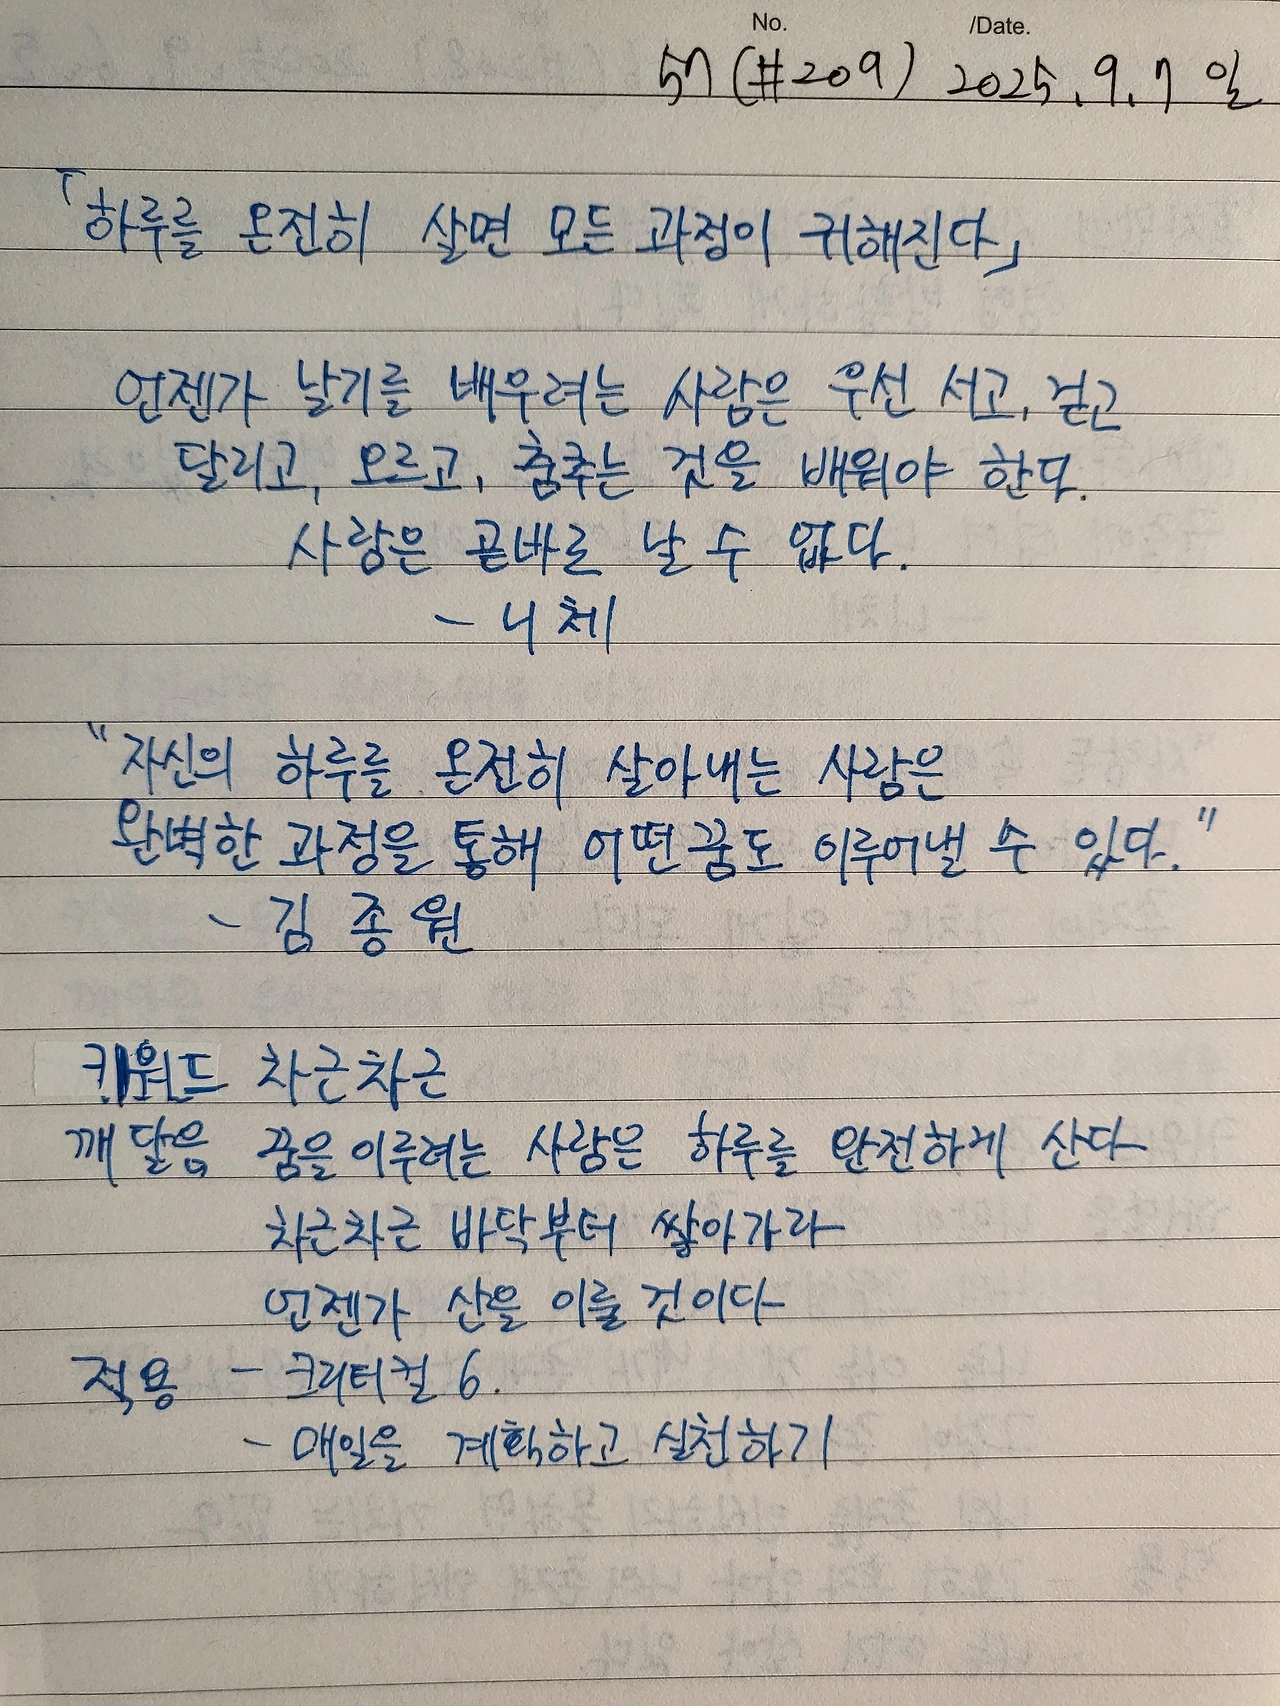 No. /Date.
57 (#209) 2025. 9. 7 일
「하루를 온전히 살면 모든 과정이 귀해진다」
언젠가 날기를 배우려는 사람은 우선 서고, 걷고
달리고, 오르고, 춤추는 것을 배워야 한다.
사람은 곧바로 날 수 없다.
- 니체
"자신의 하루를 온전히 살아내는 사람은
완벽한 과정을 통해 어떤 꿈도 이루어낼 수 있다."
- 김종원
키워드 차근차근
깨달음 꿈을 이루려는 사람은 하루를 완전하게 산다
차근차근 바닥부터 쌓아가라
언젠가 산을 이룰 것이다
적용 - 크리티컬 6.
- 매일을 계획하고 실천하기